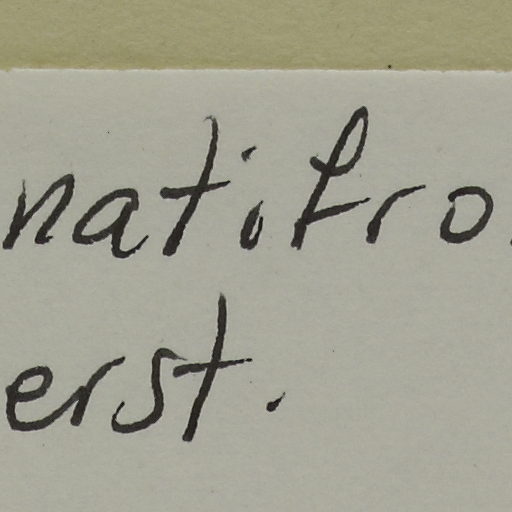 natifro
erst.